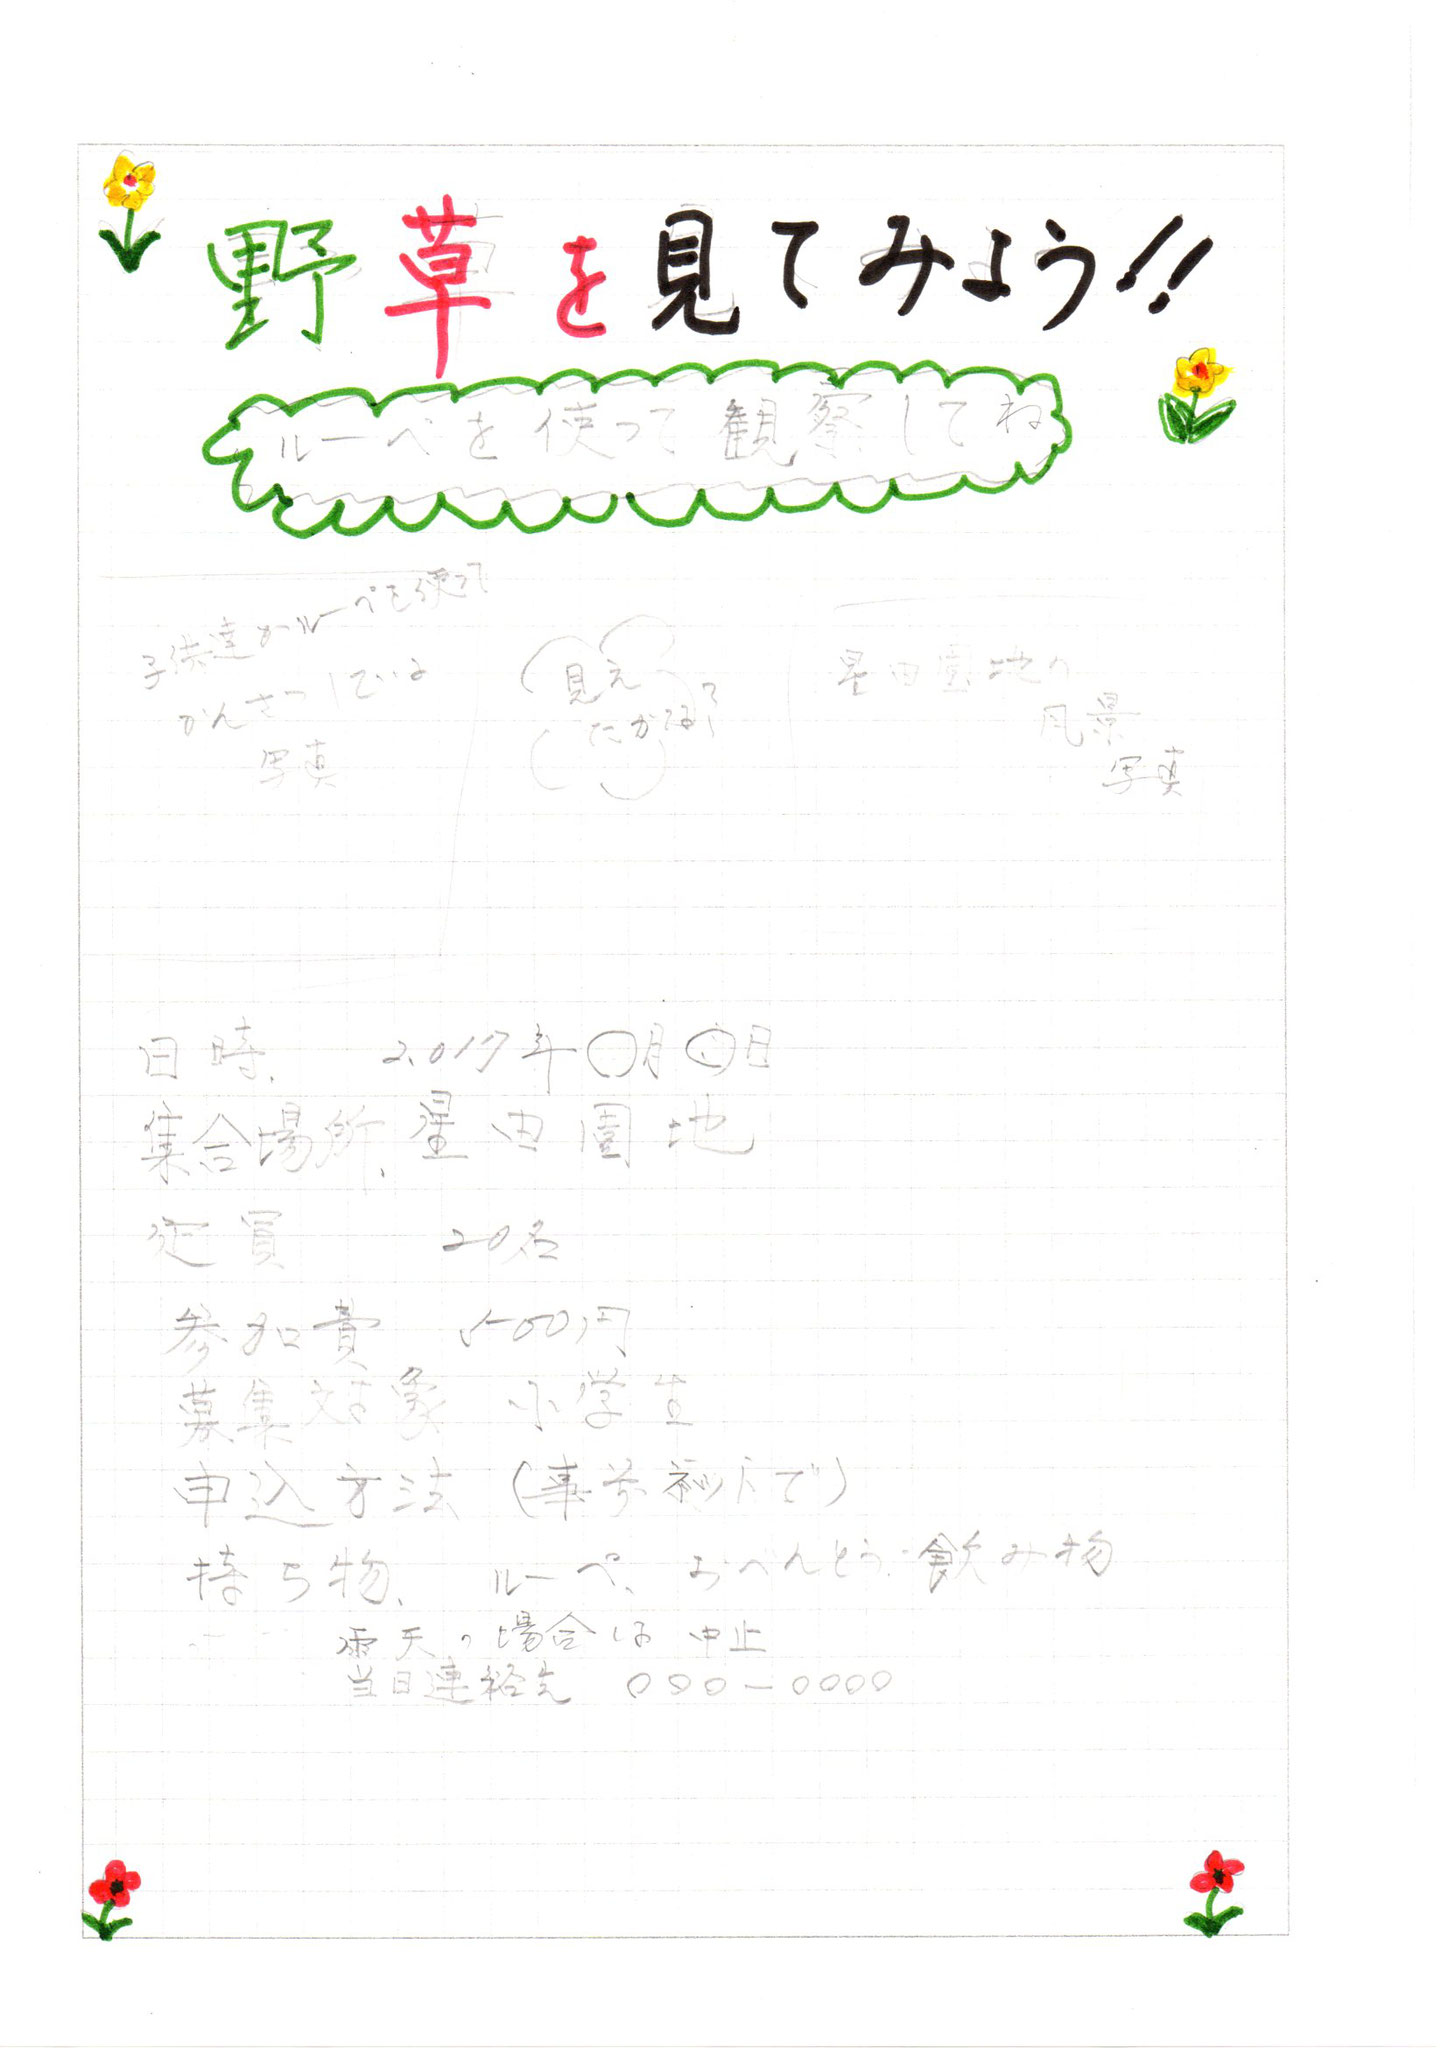 野草を見てみよう!!
ルーペを使って観察してね
子供達がルーペを使って
かんさつしている
写真
見え
たかな?
星田園地の
風景
写真
日時、 2017年〇月〇日
集合場所、星田園地
定員 20名
参加費 500円
募集対象 小学生
申込方法 (事前ネットで)
持ち物、 ルーペ、おべんとう・飲み物
雨天の場合は 中止
当日連絡先 〇〇〇-〇〇〇〇